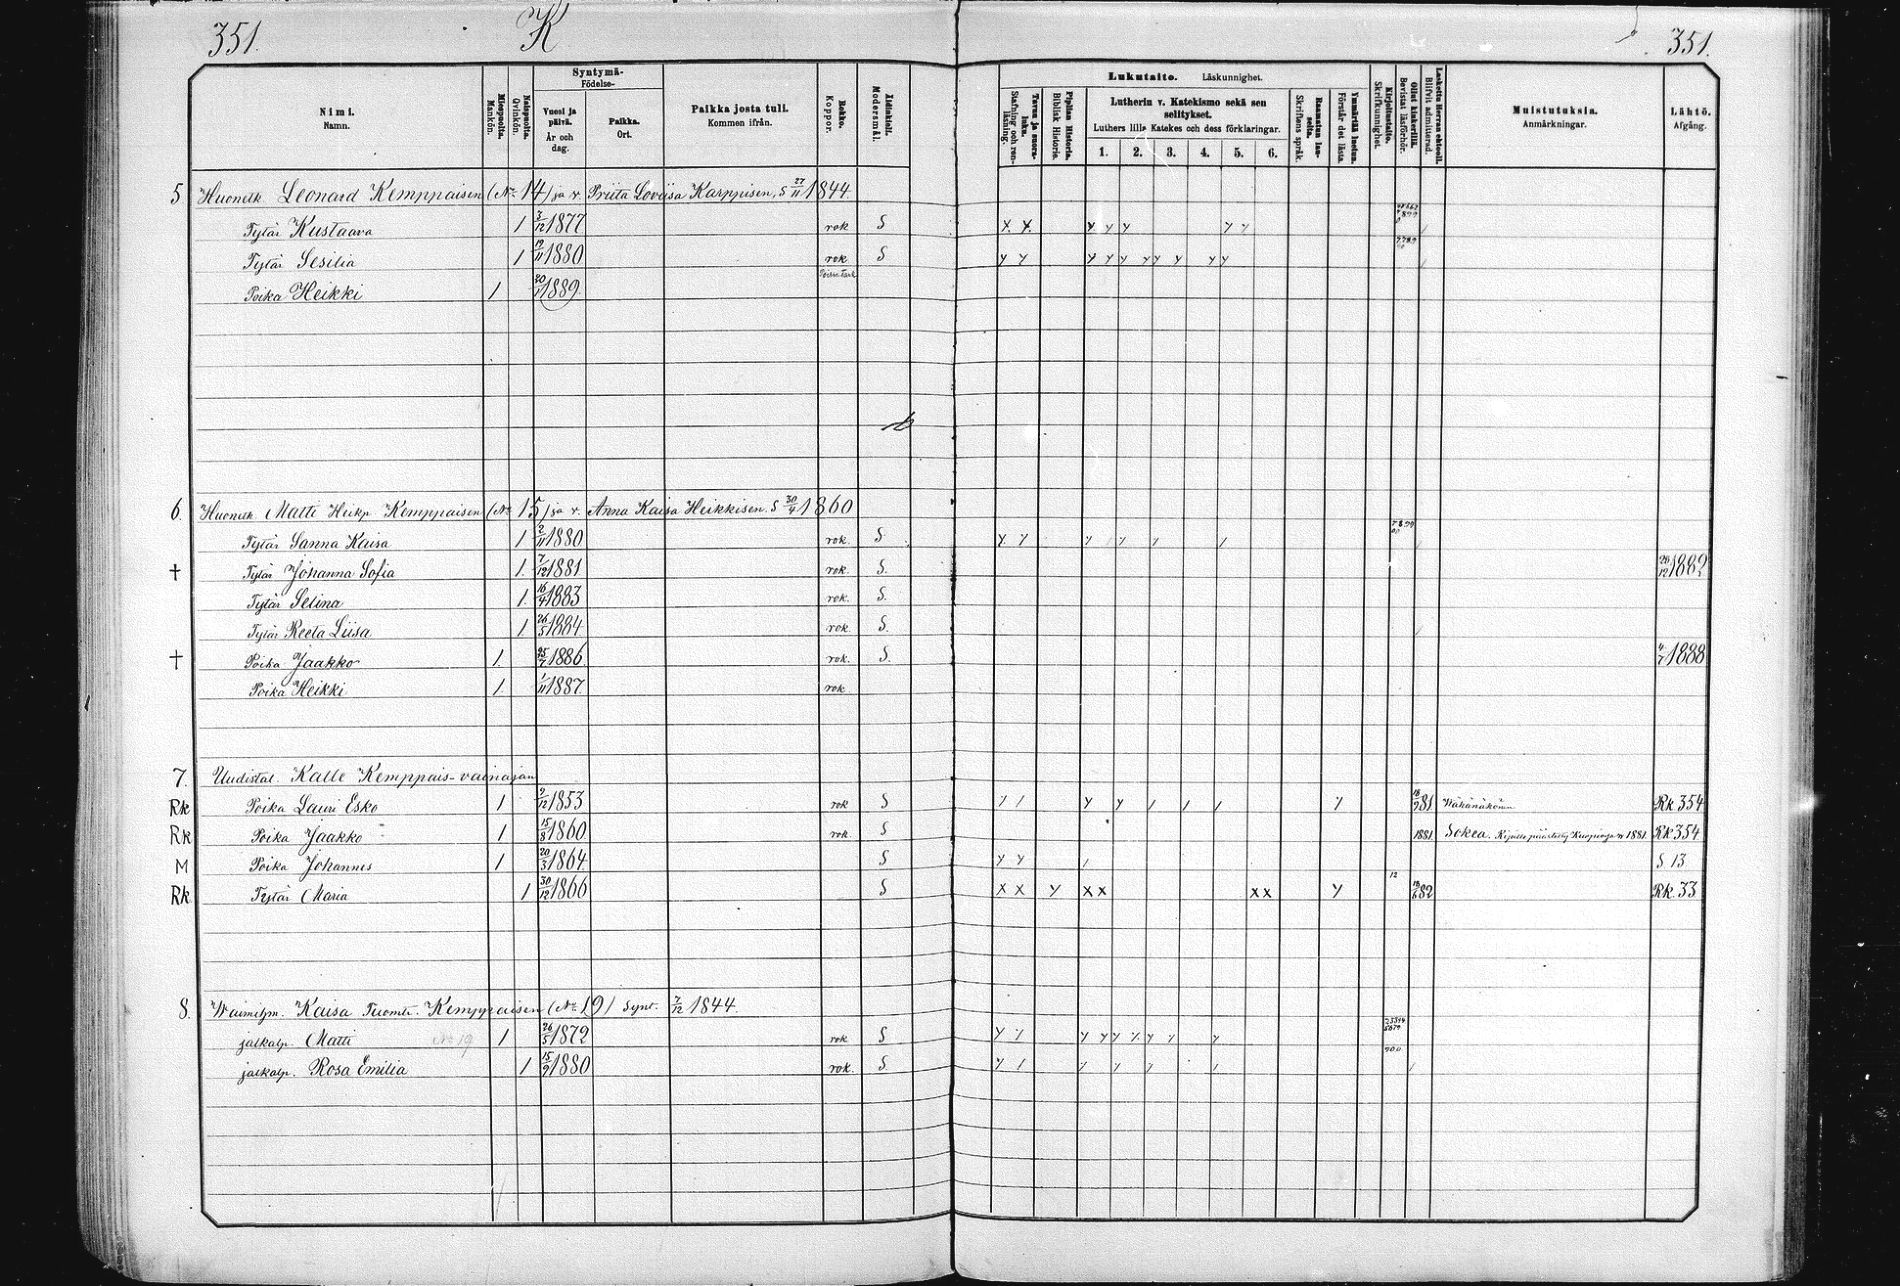 351. K 351.
Nimi. Namn.
Miespuolta. Mankön.
Naispuolta. Qvinkön.
Syntymä- Födelse-
Vuosi ja päivä. År och dag.
Paikka. Ort.
Paikka josta tuli. Kommen ifrån.
Rokko. Koppor.
Äidinkieli. Modersmål.
Lukutaito. Läskunnighet.
Tavuu ja suora- luku. Stafning och ren- läsning.
Piplian Historia. Biblisk Historia.
Lutherin v. Katekismo sekä sen selitykset.
Luthers lilla Katekes och dess förklaringar.
1. 2. 3. 4. 5. 6.
Raamatun lau- seita. Skriftens språk.
Ymmärtää luetun. Förstår det lästa.
Kirjoitustaito. Skrifkunnighet.
Ollut kinkerillä. Bevistat läsförhör.
Laskettu Herran ehtool. Blifvit admitterad.
Muistutuksia. Anmärkningar.
Lähtö. Afgång.
5 Huonek. Leonard Kemppaisen (No 14) ja v. Priita Loviisa Karppisen, S 27/11 1844.
Tytär Kustaava 1 3/12 1877 rok S x x y y y y y
Tytär Sesilia 1 19/11 1880 rok S y y y y y y y y y y
Poika Heikki 1 1889
6. Huonek. Matti Heikp Kemppaisen (No 15) ja v. Anna Kaisa Heikkisen. S 30/4 1860
Tytär Sanna Kaisa 1 2/11 1880 rok. S
† Tytär Johanna Sofia 1. 7/12 1881 rok. S. 1882
Tytär Selina 1. 16/4 1883 rok. S.
Tytär Reeta Liisa 1 26/5 1884 rok. S.
† Poika Jaakko 1. 25/7 1886 rok. S. 4/7 1888
Poika Heikki 1. 1/11 1887 rok
7. Uudistal. Kalle Kemppais-vainajan
Rk Poika Lauri Esko 1 2/12 1853 rok S 81 Rk 354
Rk Poika Jaakko 1 15/8 1860 rok. S 1881 Sokea. 1881 Rk 354
M Poika Johannes 1 20/3 1864 S y y S 13
Rk Tytär Maria 1 30/12 1866 S x x y x x x x y 12 82 Rk. 33
8. Kaisa Kemppaisen (No 19) Synt. 7/12 1844.
jalkalp. Matti No 19 1 26/5 1872 rok S
jalkalp. Rosa Emilia 1 15/9 1880 rok. S